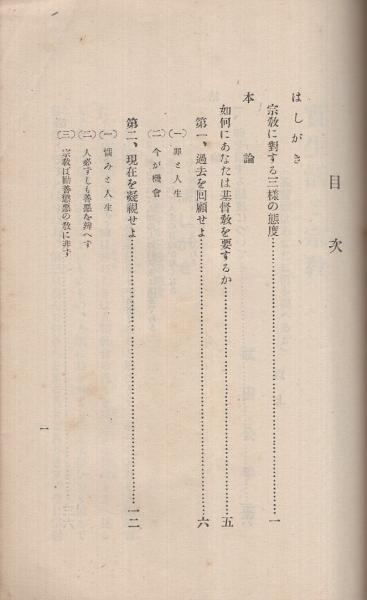 目次
はしがき
宗教に對する三樣の態度…………一
本論
如何にあなたは基督教を要するか…………五
第一、過去を回顧せよ…………六
(一) 罪と人生
(二) 今が機會
第二、現在を凝視せよ…………一二
(一) 惱みと人生
(二) 人必ずしも善惡を辨へず
(三) 宗教は勸善懲惡の教に非ず
一